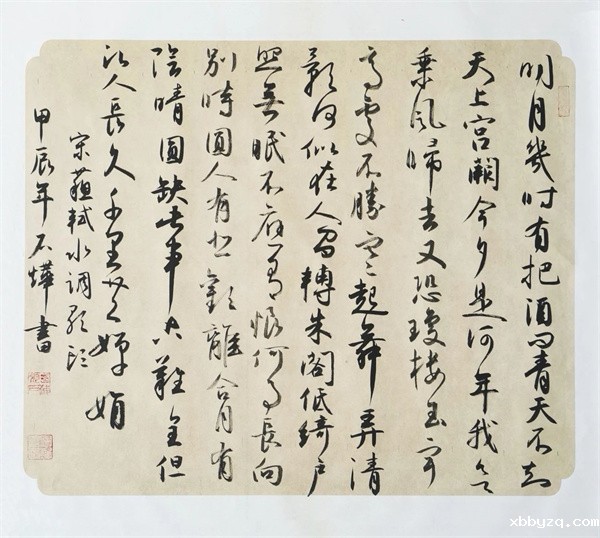 明月幾时有把酒问青天不知
天上宫闕今夕是何年我欲
乗风歸去又恐瓊楼玉宇
高处不勝寒起舞弄清
影何似在人间轉朱阁低绮户
照無眠不应有恨何事長向
别時圓人有悲歡離合月有
陰晴圓缺此事古難全但
願人長久千里共嬋娟
宋蘇軾水调歌头
甲辰年石燁書
xbbyzq.com